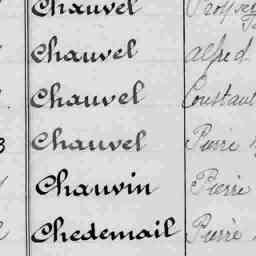 Chauvel
Chauvel alfred
Chauvel Constant
Chauvel Pierre
Chauvin Pierre
Chedemail Pierre